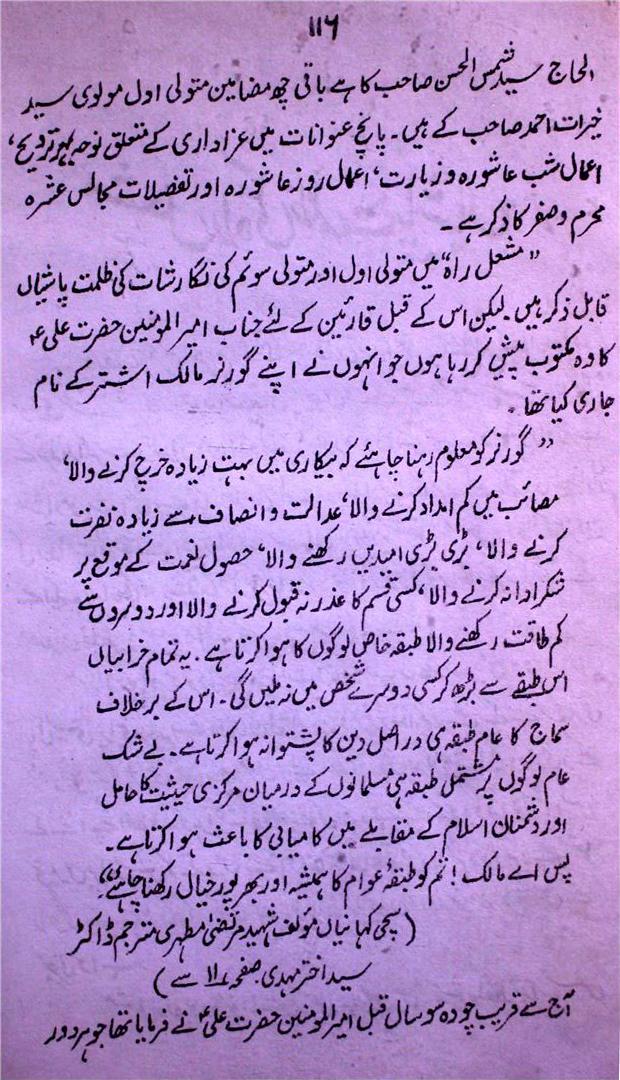 ۱۱۶
الحاج سید شمس الحسن صاحب کا ہے باقی چھ مضامین متولی اول مولوی سید
خیرات احمد صاحب کے ہیں۔ پانچ عنوانات میں عزاداری کے متعلق نوحہ بہر ترویح،
اعمال شب عاشورہ و زیارت، اعمال روز عاشورہ اور تفصیلات مجالس عشرہ
محرم و صفر کا ذکر ہے۔
"مشعل راہ" میں متولی اول اور متولی سوئم کی نگارشات کی ظلمت پاشیاں
قابل ذکر ہیں۔ لیکن اس کے قبل قارئین کے لئے جناب امیر المومنین حضرت علیؑ
کا وہ مکتوب پیش کر رہا ہوں جو انہوں نے اپنے گورنر مالک اشتر کے نام
جاری کیا تھا۔
"گورنر کو معلوم رہنا چاہئے کہ بیکاری میں بہت زیادہ خرچ کرنے والا،
مصائب میں کم امداد کرنے والا، عدالت و انصاف سے زیادہ نفرت
کرنے والا، بڑی بڑی امیدیں رکھنے والا، حصول نعمت کے موقع پر
شکر ادا نہ کرنے والا، کسی قسم کا عذر نہ قبول کرنے والا اور دوسروں سے
کم طاقت رکھنے والا طبقہ خاص لوگوں کا ہوا کرتا ہے۔ یہ تمام خرابیاں
اس طبقے سے بڑھ کر کسی دوسرے شخص میں نہ ملیں گی۔ اس کے برخلاف
سماج کا عام طبقہ ہی دراصل دین کا پشتوانہ ہوا کرتا ہے۔ بے شک
عام لوگوں پر مشتمل طبقہ ہی مسلمانوں کے درمیان مرکزی حیثیت کا حامل
اور دشمنان اسلام کے مقابلے میں کامیابی کا باعث ہوا کرتا ہے۔
پس اے مالک! تم کو طبقۂ عوام کا ہمیشہ اور بھرپور خیال رکھنا چاہئے"۔
(سچی کہانیاں مؤلف شہید مرتضیٰ مطہری مترجم ڈاکٹر
سید اختر مہدی صفحہ ۱۱۷ سے)
آج سے قریب چودہ سو سال قبل امیر المومنین حضرت علیؑ نے فرمایا تھا جو ہر دور